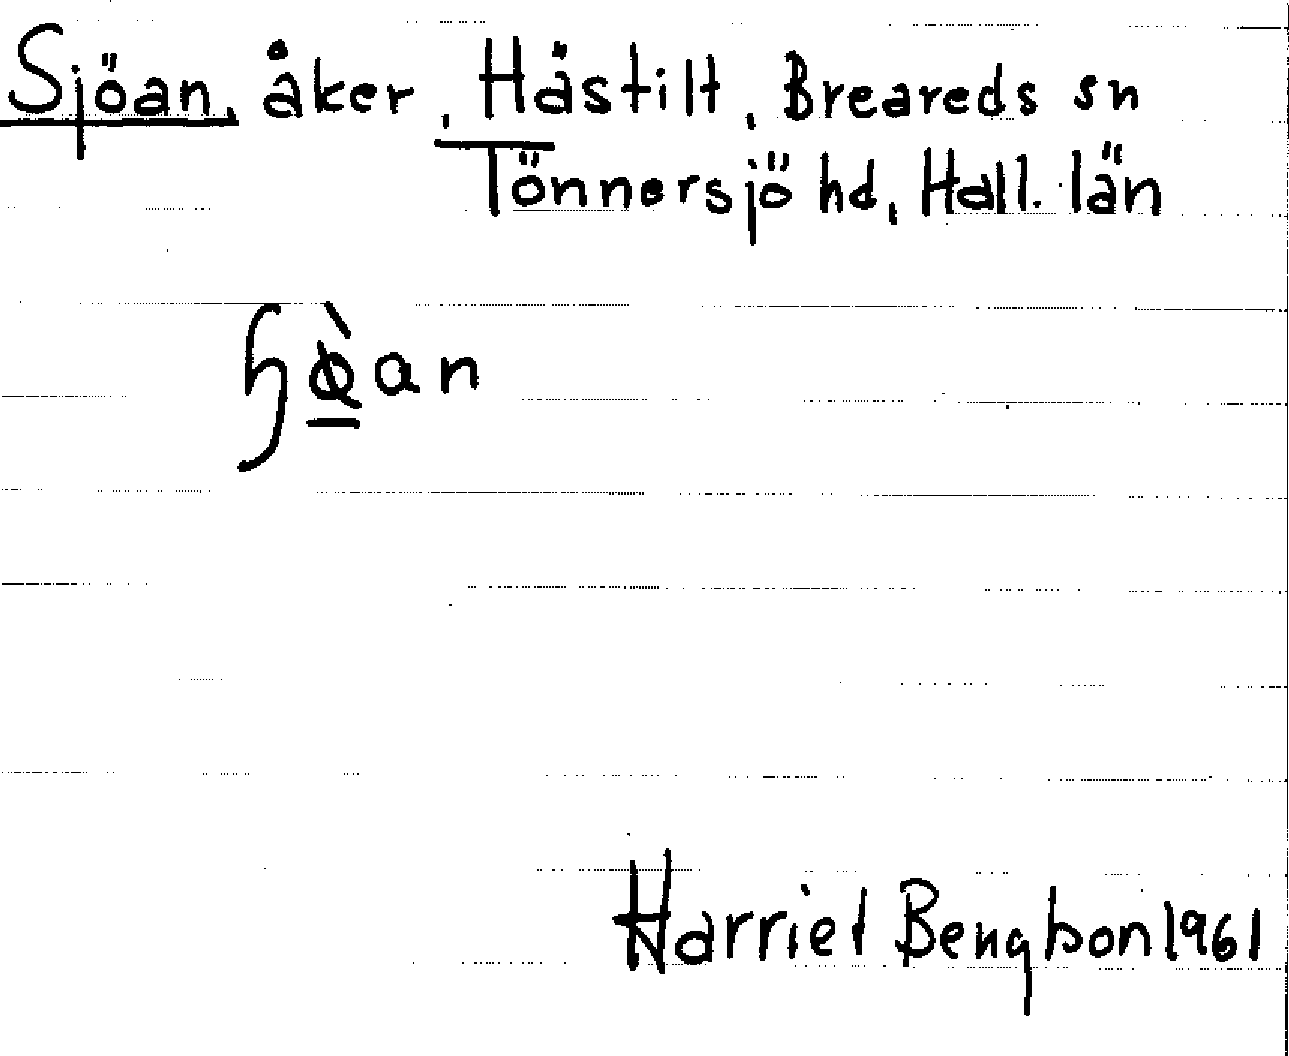 Sjöan, åker, Håstilt, Breareds sn
Tönnersjö hd, Hall. län
ɧø̀an
Harriet Bengtson 1961